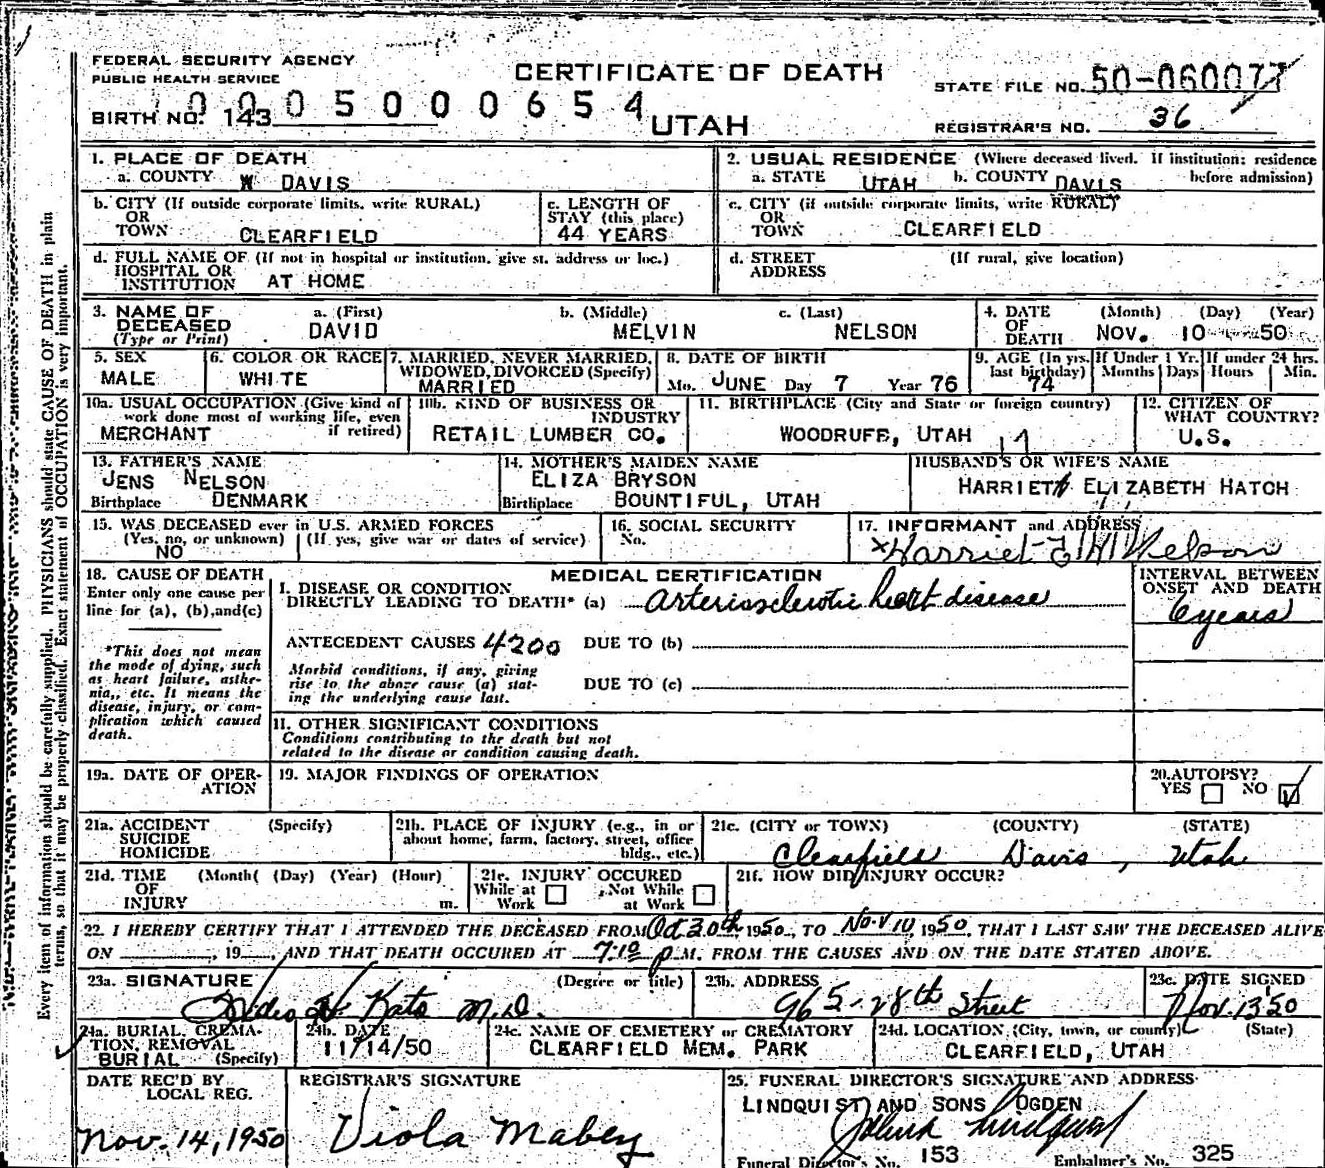 FEDERAL SECURITY AGENCY
PUBLIC HEALTH SERVICE
CERTIFICATE OF DEATH
STATE FILE NO. 50-060077
0005000654
BIRTH NO. 143
UTAH
REGISTRAR'S NO. 36
1. PLACE OF DEATH
a. COUNTY W DAVIS
2. USUAL RESIDENCE (Where deceased lived. If institution: residence before admission)
a. STATE UTAH b. COUNTY DAVIS
b. CITY (If outside corporate limits, write RURAL)
OR
TOWN CLEARFIELD
c. LENGTH OF
STAY (this place)
44 YEARS
c. CITY (if outside corporate limits, write RURAL)
OR
TOWN CLEARFIELD
d. FULL NAME OF (If not in hospital or institution, give st. address or loc.)
HOSPITAL OR
INSTITUTION AT HOME
d. STREET (If rural, give location)
ADDRESS
3. NAME OF
DECEASED
(Type or Print)
a. (First) b. (Middle) c. (Last)
DAVID MELVIN NELSON
4. DATE (Month) (Day) (Year)
OF
DEATH NOV. 10 50
5. SEX
MALE
6. COLOR OR RACE
WHITE
7. MARRIED, NEVER MARRIED,
WIDOWED, DIVORCED (Specify)
MARRIED
8. DATE OF BIRTH
Mo. JUNE Day 7 Year 76
9. AGE (In yrs. last birthday)
74
If Under 1 Yr.
Months Days
If under 24 hrs.
Hours Min.
10a. USUAL OCCUPATION (Give kind of
work done most of working life, even
if retired)
MERCHANT
10b. KIND OF BUSINESS OR
INDUSTRY
RETAIL LUMBER CO.
11. BIRTHPLACE (City and State or foreign country)
WOODRUFF, UTAH
12. CITIZEN OF
WHAT COUNTRY?
U.S.
13. FATHER'S NAME
JENS NELSON
Birthplace DENMARK
14. MOTHER'S MAIDEN NAME
ELIZA BRYSON
Birthplace BOUNTIFUL, UTAH
HUSBAND'S OR WIFE'S NAME
HARRIET ELIZABETH HATCH
15. WAS DECEASED ever in U.S. ARMED FORCES
(Yes, no, or unknown) (If yes, give war or dates of service)
NO
16. SOCIAL SECURITY
No.
17. INFORMANT and ADDRESS
x Harriet E H Nelson
18. CAUSE OF DEATH
Enter only one cause per
line for (a), (b), and (c)
*This does not mean
the mode of dying, such
as heart failure, asthe-
nia, etc. It means the
disease, injury, or com-
plication which caused
death.
MEDICAL CERTIFICATION
I. DISEASE OR CONDITION
DIRECTLY LEADING TO DEATH* (a) Arteriosclerotic heart disease
INTERVAL BETWEEN
ONSET AND DEATH
6 years
ANTECEDENT CAUSES 4200 DUE TO (b)
Morbid conditions, if any, giving
rise to the above cause (a) stat-
ing the underlying cause last.
DUE TO (c)
II. OTHER SIGNIFICANT CONDITIONS
Conditions contributing to the death but not
related to the disease or condition causing death.
19a. DATE OF OPER-
ATION
19. MAJOR FINDINGS OF OPERATION
20. AUTOPSY?
YES NO
21a. ACCIDENT (Specify)
SUICIDE
HOMICIDE
21b. PLACE OF INJURY (e.g., in or
about home, farm, factory, street, office
bldg., etc.)
21c. (CITY or TOWN) (COUNTY) (STATE)
Clearfield Davis, Utah
21d. TIME (Month( (Day) (Year) (Hour)
OF
INJURY m.
21e. INJURY OCCURED
While at Work Not While at Work
21f. HOW DID INJURY OCCUR?
22. I HEREBY CERTIFY THAT I ATTENDED THE DECEASED FROM Oct 20th, 1950, TO Nov 10 1950, THAT I LAST SAW THE DECEASED ALIVE
ON , 19 , AND THAT DEATH OCCURED AT 7:10 p M. FROM THE CAUSES AND ON THE DATE STATED ABOVE.
23a. SIGNATURE (Degree or title)
Kato M.D.
23b. ADDRESS
965-28th Street
23c. DATE SIGNED
Nov. 13 50
24a. BURIAL, CREMA-
TION, REMOVAL
BURIAL (Specify)
24b. DATE
11/14/50
24c. NAME OF CEMETERY or CREMATORY
CLEARFIELD MEM. PARK
24d. LOCATION (City, town, or county) (State)
CLEARFIELD, UTAH
DATE REC'D BY
LOCAL REG.
Nov. 14, 1950
REGISTRAR'S SIGNATURE
Viola Mabey
25. FUNERAL DIRECTOR'S SIGNATURE AND ADDRESS
LINDQUIST AND SONS OGDEN
Funeral Director's No. 153 Embalmer's No. 325
Every item of information should be carefully supplied. PHYSICIANS should state CAUSE OF DEATH in plain
terms, so that it may be properly classified. Exact statement of OCCUPATION is very important.